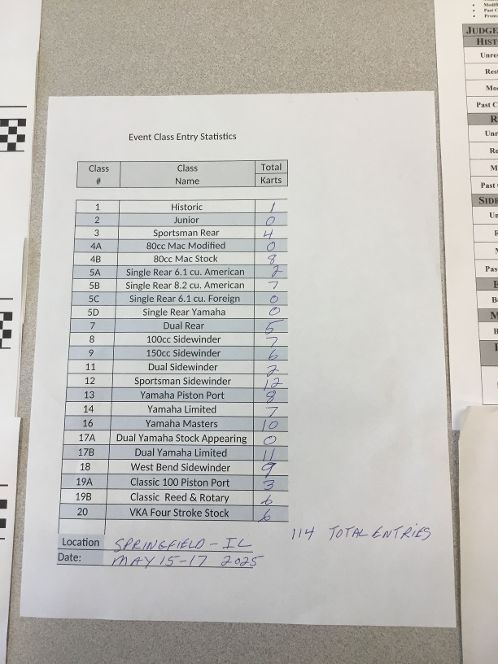 Event Class Entry Statistics
Class # Class Name Total Karts
1 Historic 1
2 Junior 0
3 Sportsman Rear 4
4A 80cc Mac Modified 0
4B 80cc Mac Stock 8
5A Single Rear 6.1 cu. American 2
5B Single Rear 8.2 cu. American 7
5C Single Rear 6.1 cu. Foreign 0
5D Single Rear Yamaha 0
7 Dual Rear 5
8 100cc Sidewinder 7
9 150cc Sidewinder 6
11 Dual Sidewinder 2
12 Sportsman Sidewinder 12
13 Yamaha Piston Port 8
14 Yamaha Limited 7
16 Yamaha Masters 10
17A Dual Yamaha Stock Appearing 0
17B Dual Yamaha Limited 11
18 West Bend Sidewinder 9
19A Classic 100 Piston Port 3
19B Classic Reed & Rotary 6
20 VKA Four Stroke Stock 6
114 TOTAL ENTRIES
Location SPRINGFIELD - IL
Date: MAY 15-17 2025
JUDGE
HIST
Past C
Past
SIDE
Pas